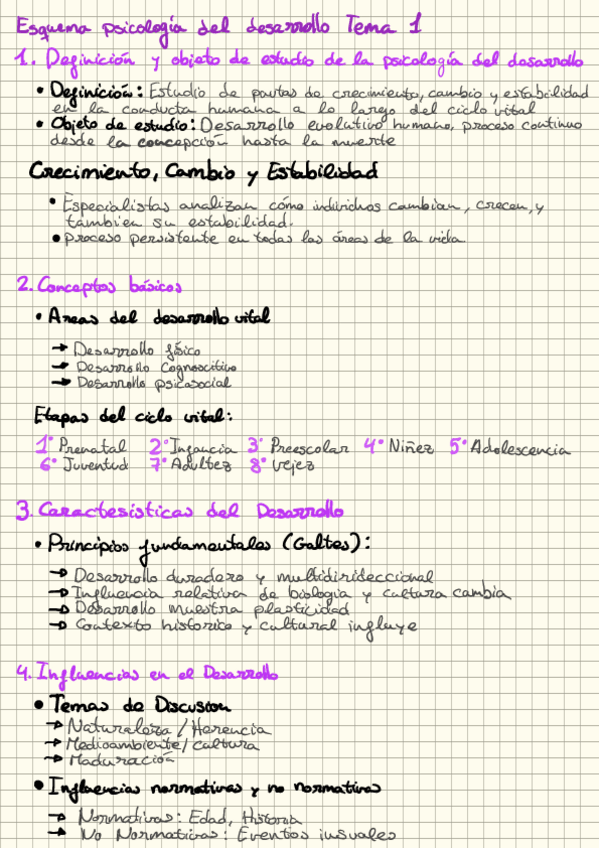 Esquema psicología del desarrollo Tema 1
1. Definición y objeto de estudio de la psicología del desarrollo
• Definición: Estudio de pautas de crecimiento, cambio y estabilidad
en la conducta humana a lo largo del ciclo vital
• Objeto de estudio: Desarrollo evolutivo humano, proceso continuo
desde la concepción hasta la muerte
Crecimiento, Cambio y Estabilidad
• Especialistas analizan cómo individuos cambian, crecen, y
también su estabilidad.
• Proceso persistente en todas las áreas de la vida
2. Conceptos básicos
• Areas del desarrollo vital
→ Desarrollo físico
→ Desarrollo Cognoscitivo
→ Desarrollo psicosocial
Etapas del ciclo vital:
1° Prenatal 2° Infancia 3° Preescolar 4° Niñez 5° Adolescencia
6° Juventud 7° Adultez 8° vejez
3. Caractesísticas del Desarrollo
• Principios fundamentales (Galtes):
→ Desarrollo duradero y multidirideccional
→ Influencia relativa de biología y cultura cambia
→ Desarrollo muestra plasticidad
→ Contexto historico y cultural influye
4. Influencias en el Desarrollo
• Temas de Discusion
→ Naturaleza / Herencia
→ Medioambiente / cultura
→ Maduración
• Influencias normativas y no normativas
→ Normativas: Edad, Historia
→ No Normativas: Eventos inusuales